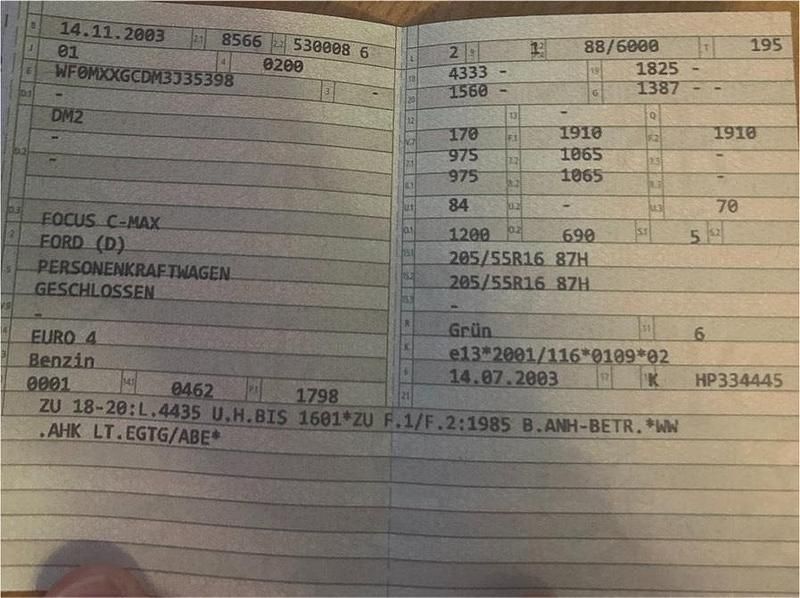 B 14.11.2003 2.1 8566 2.2 530008 6
J 01 4 0200
E WF0MXXGCDM3J35398 3 -
D.1 -
DM2
-
D.2 -
D.3 FOCUS C-MAX
2 FORD (D)
5 PERSONENKRAFTWAGEN
GESCHLOSSEN
V.9 -
14 EURO 4
P.3 Benzin
0001 14.1 0462 P.1 1798
L 2 9 1 P.2 88/6000 T 195
18 4333 - 19 1825 -
20 1560 - G 1387 - -
12 13 - Q
V.7 170 F.1 1910 F.2 1910
7.1 975 7.2 1065 7.3 -
8.1 975 8.2 1065 8.3 -
U.1 84 U.2 - U.3 70
O.1 1200 O.2 690 S.1 5 S.2
15.1 205/55R16 87H
15.2 205/55R16 87H
15.3 -
R Grün 11 6
K e13*2001/116*0109*02
6 14.07.2003 17 K HP334445
21
ZU 18-20:L.4435 U.H.BIS 1601*ZU F.1/F.2:1985 B.ANH-BETR.*WW
.AHK LT.EGTG/ABE*